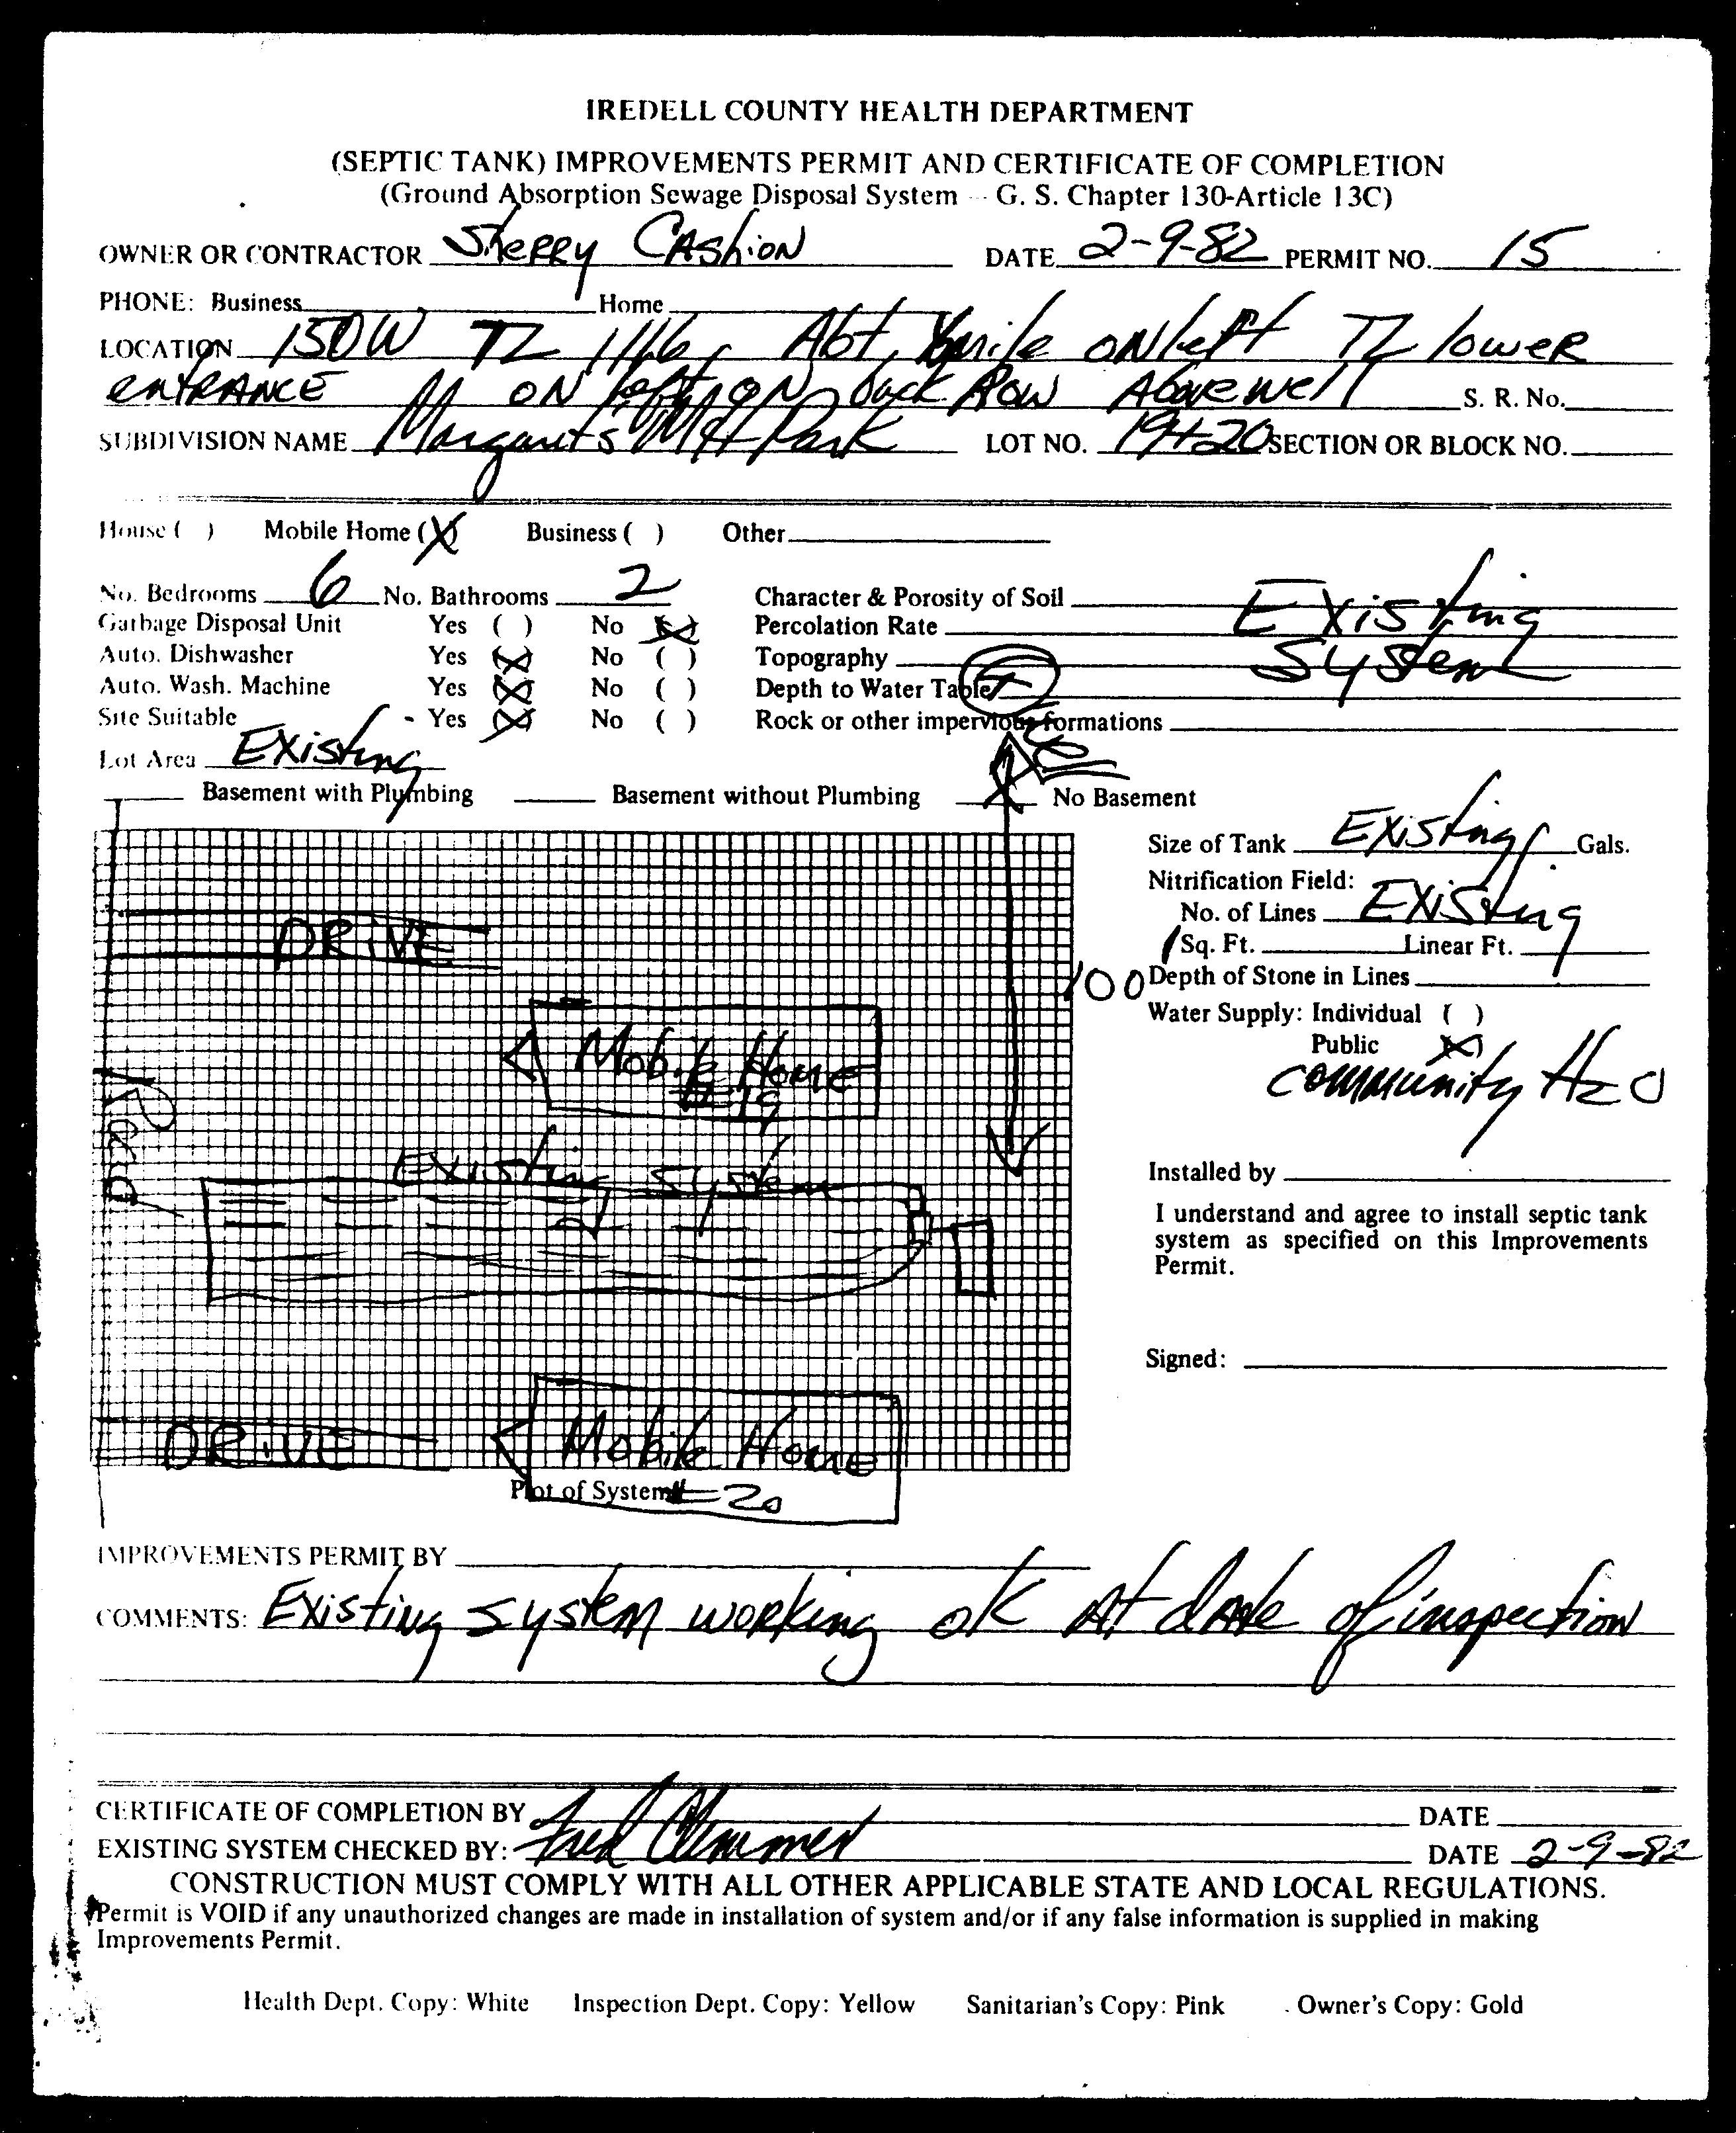 IREDELL COUNTY HEALTH DEPARTMENT
(SEPTIC TANK) IMPROVEMENTS PERMIT AND CERTIFICATE OF COMPLETION
(Ground Absorption Sewage Disposal System -- G. S. Chapter 130-Article 13C)
OWNER OR CONTRACTOR Sherry Cashion DATE 2-9-82 PERMIT NO. 15
PHONE: Business Home
LOCATION 150W TL 1146, Abt, mile on left TL lower
entrance on left on back Row Above well S. R. No.
SUBDIVISION NAME Margarets MH Park LOT NO. 19+20 SECTION OR BLOCK NO.
House ( ) Mobile Home (X) Business ( ) Other
No. Bedrooms 6 No. Bathrooms 2 Character & Porosity of Soil Existing
Garbage Disposal Unit Yes ( ) No (X) Percolation Rate System
Auto. Dishwasher Yes (X) No ( ) Topography
Auto. Wash. Machine Yes (X) No ( ) Depth to Water Table
Site Suitable - Yes (X) No ( ) Rock or other impervious formations
Lot Area Existing
Basement with Plumbing Basement without Plumbing X No Basement
Size of Tank Existing Gals.
Nitrification Field:
No. of Lines Existing
Sq. Ft. Linear Ft.
100
Depth of Stone in Lines
Water Supply: Individual ( )
Public (X)
community H2O
Installed by
I understand and agree to install septic tank
system as specified on this Improvements
Permit.
Signed:
DRIVE
Mobile Home
#19
Road
Existing System
DRIVE
Mobile Home
Plot of System #20
IMPROVEMENTS PERMIT BY
COMMENTS: Existing system working ok At date of inspection
CERTIFICATE OF COMPLETION BY DATE
EXISTING SYSTEM CHECKED BY: Fred Clemmer DATE 2-9-82
CONSTRUCTION MUST COMPLY WITH ALL OTHER APPLICABLE STATE AND LOCAL REGULATIONS.
Permit is VOID if any unauthorized changes are made in installation of system and/or if any false information is supplied in making
Improvements Permit.
Health Dept. Copy: White Inspection Dept. Copy: Yellow Sanitarian's Copy: Pink Owner's Copy: Gold